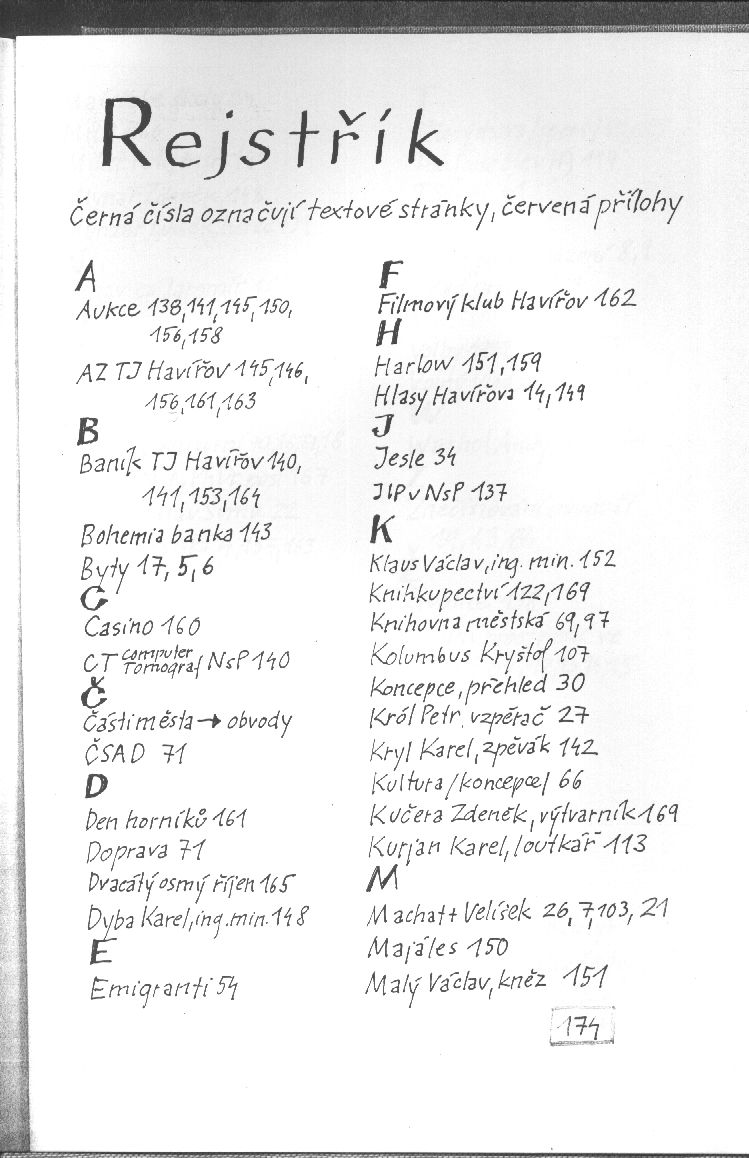 Rejstřík
Černá čísla označují textové stránky, červená přílohy
A
Aukce 138,141,145,150,
156,158
AZ TJ Havířov 145,146,
156,161,163
B
Baník TJ Havířov 140,
141,153,164
Bohemia banka 143
Byty 17, 5, 6
C
Casino 160
CT computer Tomograf NsP 140
Č
Části města → obvody
ČSAD 71
D
Den horníků 161
Doprava 71
Dvacátý osmý říjen 165
Dyba Karel, ing. min. 148
E
Emigranti 54
F
Filmový klub Havířov 162
H
Harlow 151, 159
Hlasy Havířova 14, 149
J
Jesle 34
JIP v NsP 137
K
Klaus Václav, ing. min. 152
Knihkupectví 122, 169
Knihovna městská 69, 97
Kolumbus Kryštof 107
Koncepce, přehled 30
Król Petr, vzpěrač 27
Kryl Karel, zpěvák 142
Kultura /koncepce/ 66
Kučera Zdeněk, výtvarník 169
Kurjan Karel, loutkář 113
M
Machatt Velíšek 26, 7, 103, 21
Majáles 150
Malý Václav, kněz 151
174